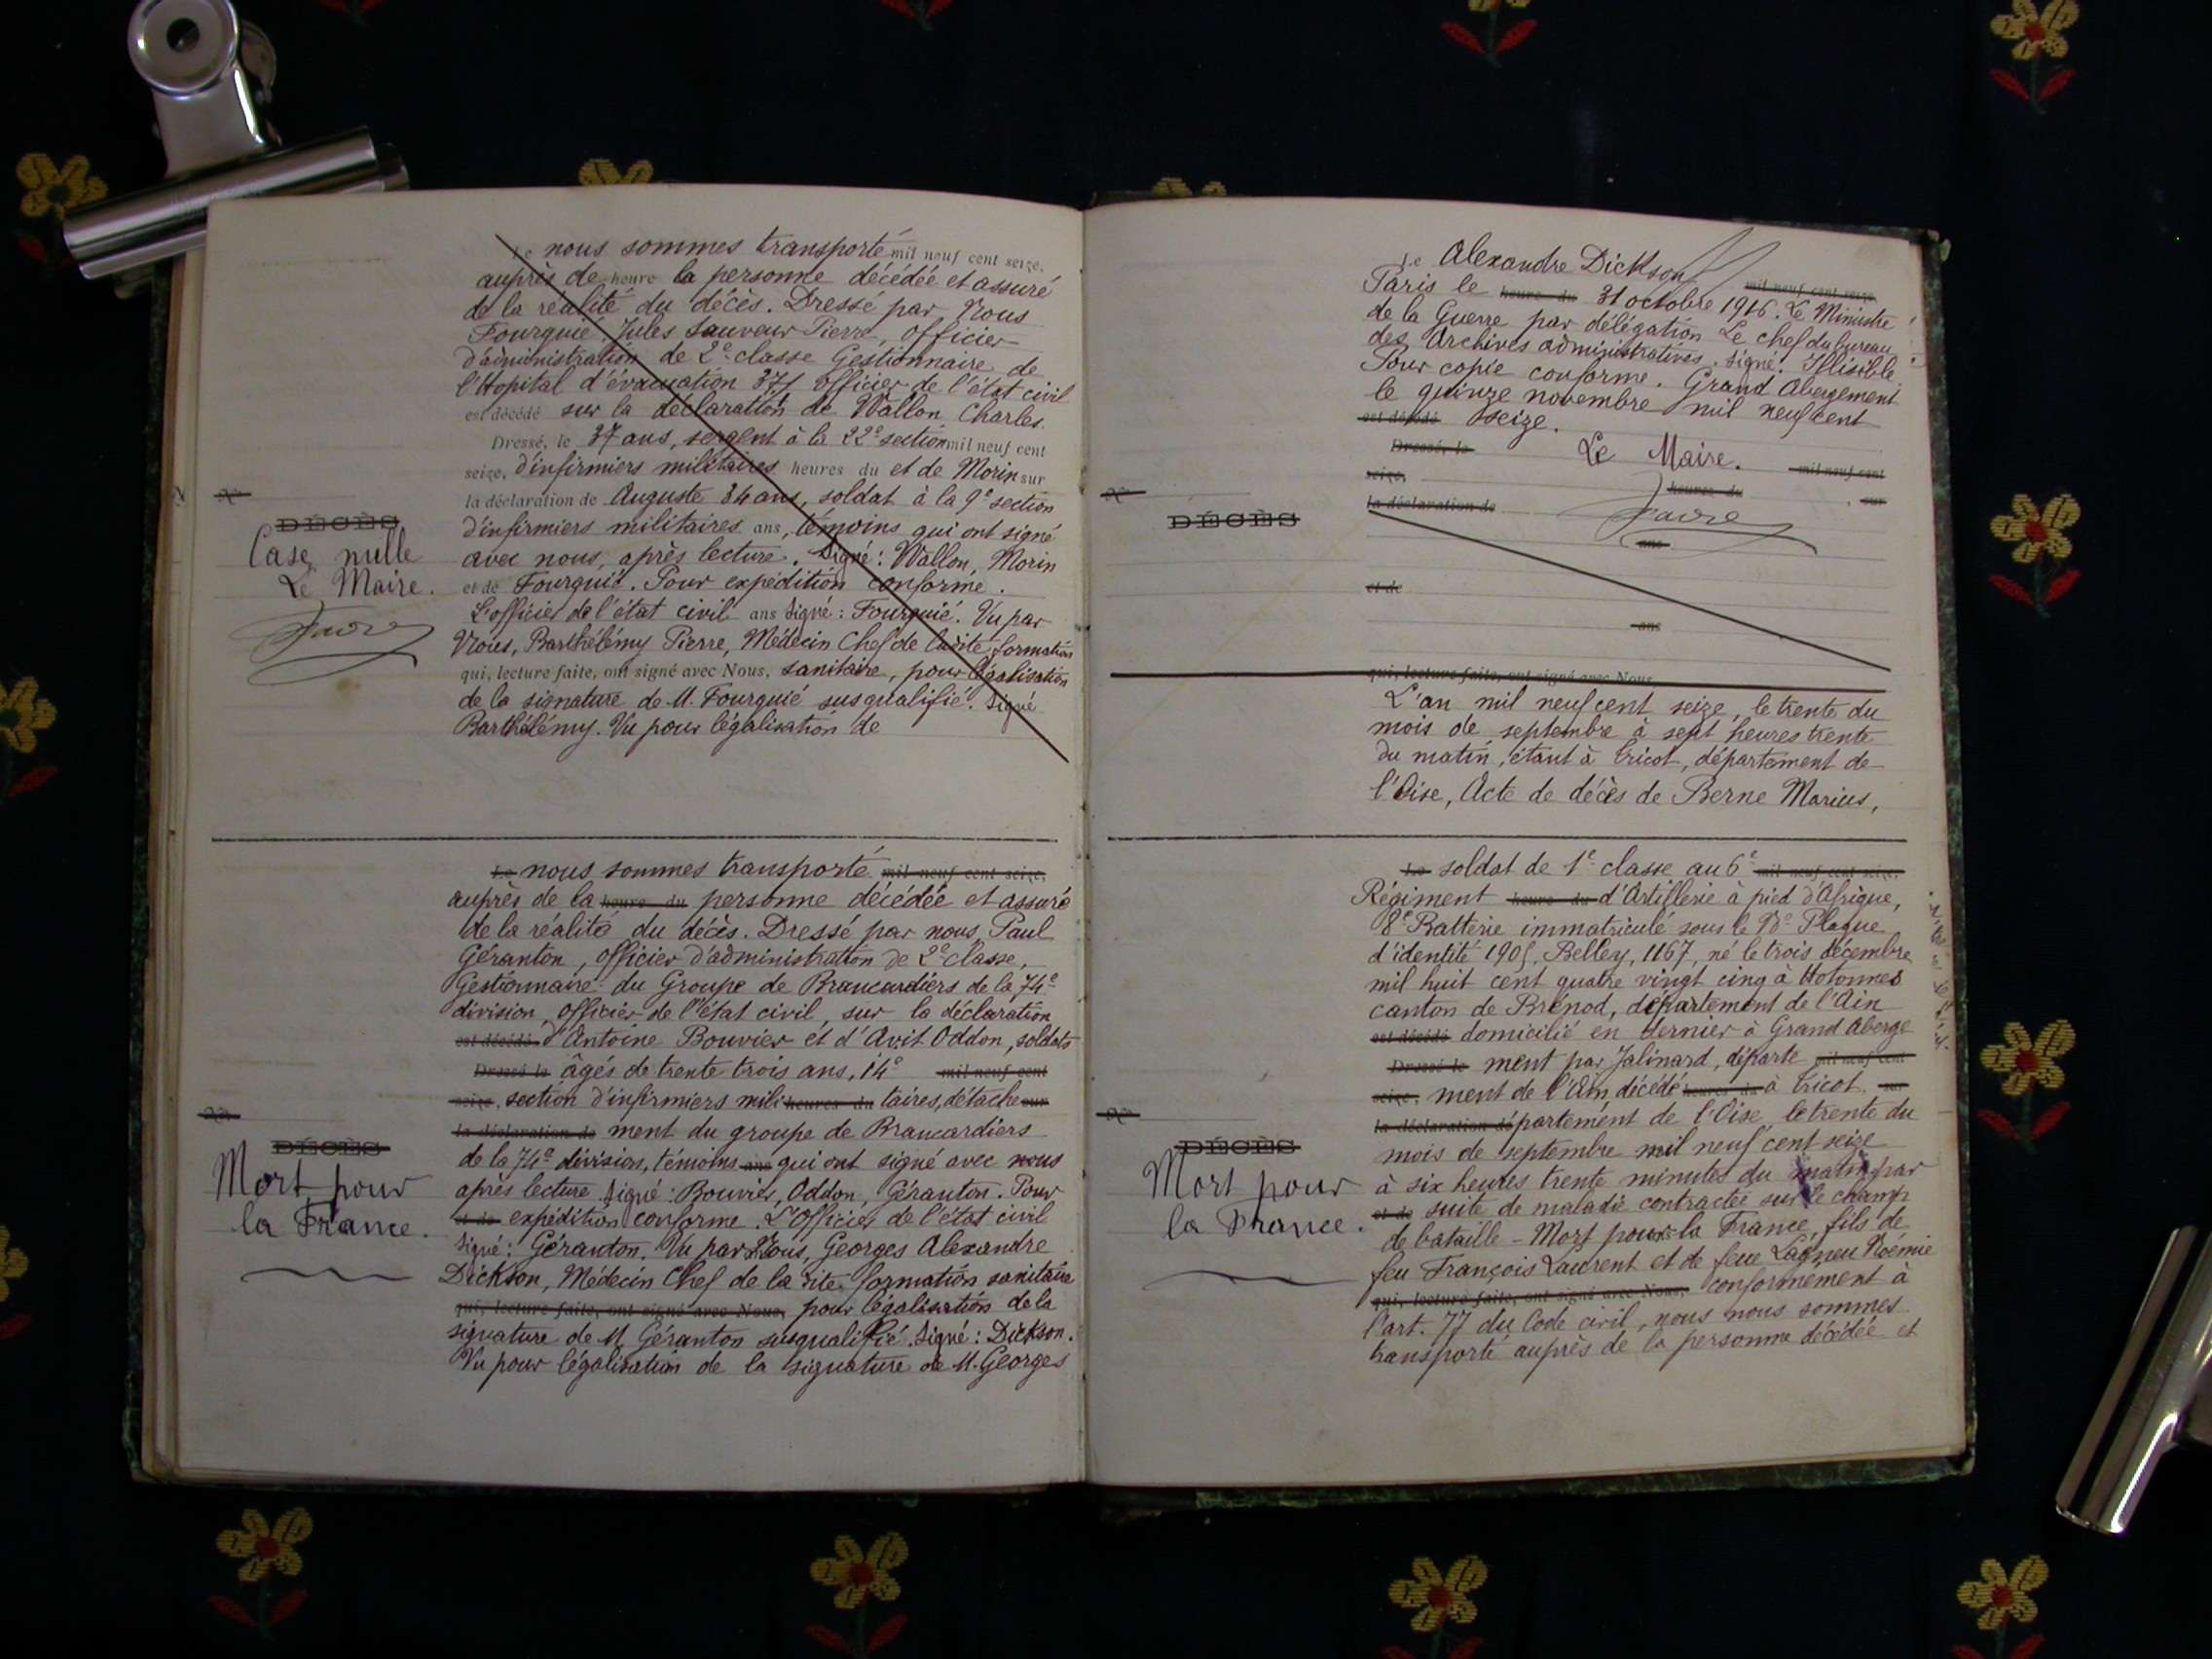 Le nous sommes transporté mil neuf cent seize,
auprès de heure la personne décédée et assuré
de la réalité du décès. Dressé par Nous
Fourquié, Jules Sauveur Pierre, Officier
d'administration de 2e classe Gestionnaire de
l'Hopital d'évacuation 37/1 officier de l'état civil
est décédé sur la déclaration de Wallon Charles.
Dressé, le 37 ans, sergent à la 22e section mil neuf cent
seize, d'infirmiers militaires heures du et de Morin sur
la déclaration de Auguste 34 ans, soldat à la 9e section
d'infirmiers militaires ans, témoins qui ont signé
avec nous, après lecture. Signé : Wallon, Morin
et de Fourquié. Pour expédition conforme.
L'officier de l'état civil ans Signé : Fourquié. Vu par
Nous, Barthélémy Pierre, Médecin Chef de ladite formation
qui, lecture faite, ont signé avec Nous, sanitaire, pour légalisation
de la signature de M. Fourquié susqualifié. Signé
Barthélémy. Vu pour légalisation de
No
DÉCÈS
Case nulle
Le Maire.
Favre
Le nous sommes transporté mil neuf cent seize,
auprès de la heure du personne décédée et assuré
de la réalité du décès. Dressé par nous, Paul
Géranton, officier d'administration de 2e classe,
Gestionnaire du Groupe de Brancardiers de la 74e
division, officier de l'état civil, sur la déclaration
est décédé d'Antoine Bouvier et d'Avit Oddon, soldats
Dressé le âgés de trente trois ans, 14e mil neuf cent
seize, section d'infirmiers mili heures du taires, détache sur
la déclaration de ment du groupe de Brancardiers
de la 74e division, témoins ans qui ont signé avec nous
après lecture. Signé : Bouvier, Oddon, Géranton. Pour
et de expédition conforme. L'Officier de l'état civil
Signé : Géranton. Vu par Nous, Georges Alexandre
Dickson, Médecin Chef de la dite formation sanitaire
qui, lecture faite, ont signé avec Nous, pour légalisation de la
signature de M. Géranton susqualifié. Signé : Dickson.
Vu pour légalisation de la signature de M. Georges
No
DÉCÈS
Mort pour
la France.
Le Alexandre Dickson mil neuf cent seize,
Paris le heure du 31 octobre 1916. Le Ministre
de la Guerre par délégation Le chef du bureau
des Archives administratives. Signé : Illisible
Pour copie conforme. Grand Abergement
le quinze novembre mil neuf cent
est décédé seize.
Dressé, le Le Maire. mil neuf cent
seize, heures du sur
la déclaration de Favre
ans
et de
ans
qui, lecture faite, ont signé avec Nous
No
DÉCÈS
L'an mil neuf cent seize, le trente du
mois de septembre à sept heures trente
du matin, étant à Tricot, département de
l'Oise, Acte de décès de Berne Marius,
Le soldat de 1e classe au 6e mil neuf cent seize,
Régiment heure du d'Artillerie à pied d'Afrique,
8e Batterie immatriculé sous le No Plaque
d'identité 1905, Belley, 1167, né le trois décembre
mil huit cent quatre vingt cinq à Hotonnes
canton de Brénod, département de l'Ain
est décédé domicilié en dernier à Grand Aberge
Dressé le ment par Jalinard, départe mil neuf cent
seize, ment de l'Ain décédé heures du à Tricot sur
la déclaration département de l'Oise, le trente du
mois de septembre mil neuf cent seize
à six heures trente minutes du matin par
et de suite de maladie contractée sur le champ
de bataille - Mort pour la France, fils de
feu François Laurent et de feue Lagneu Noémie
qui, lecture faite, ont signé avec Nous, conformément à
l'art. 77 du Code civil, nous nous sommes
transporté auprès de la personne décédée et
No
DÉCÈS
Mort pour
la France.